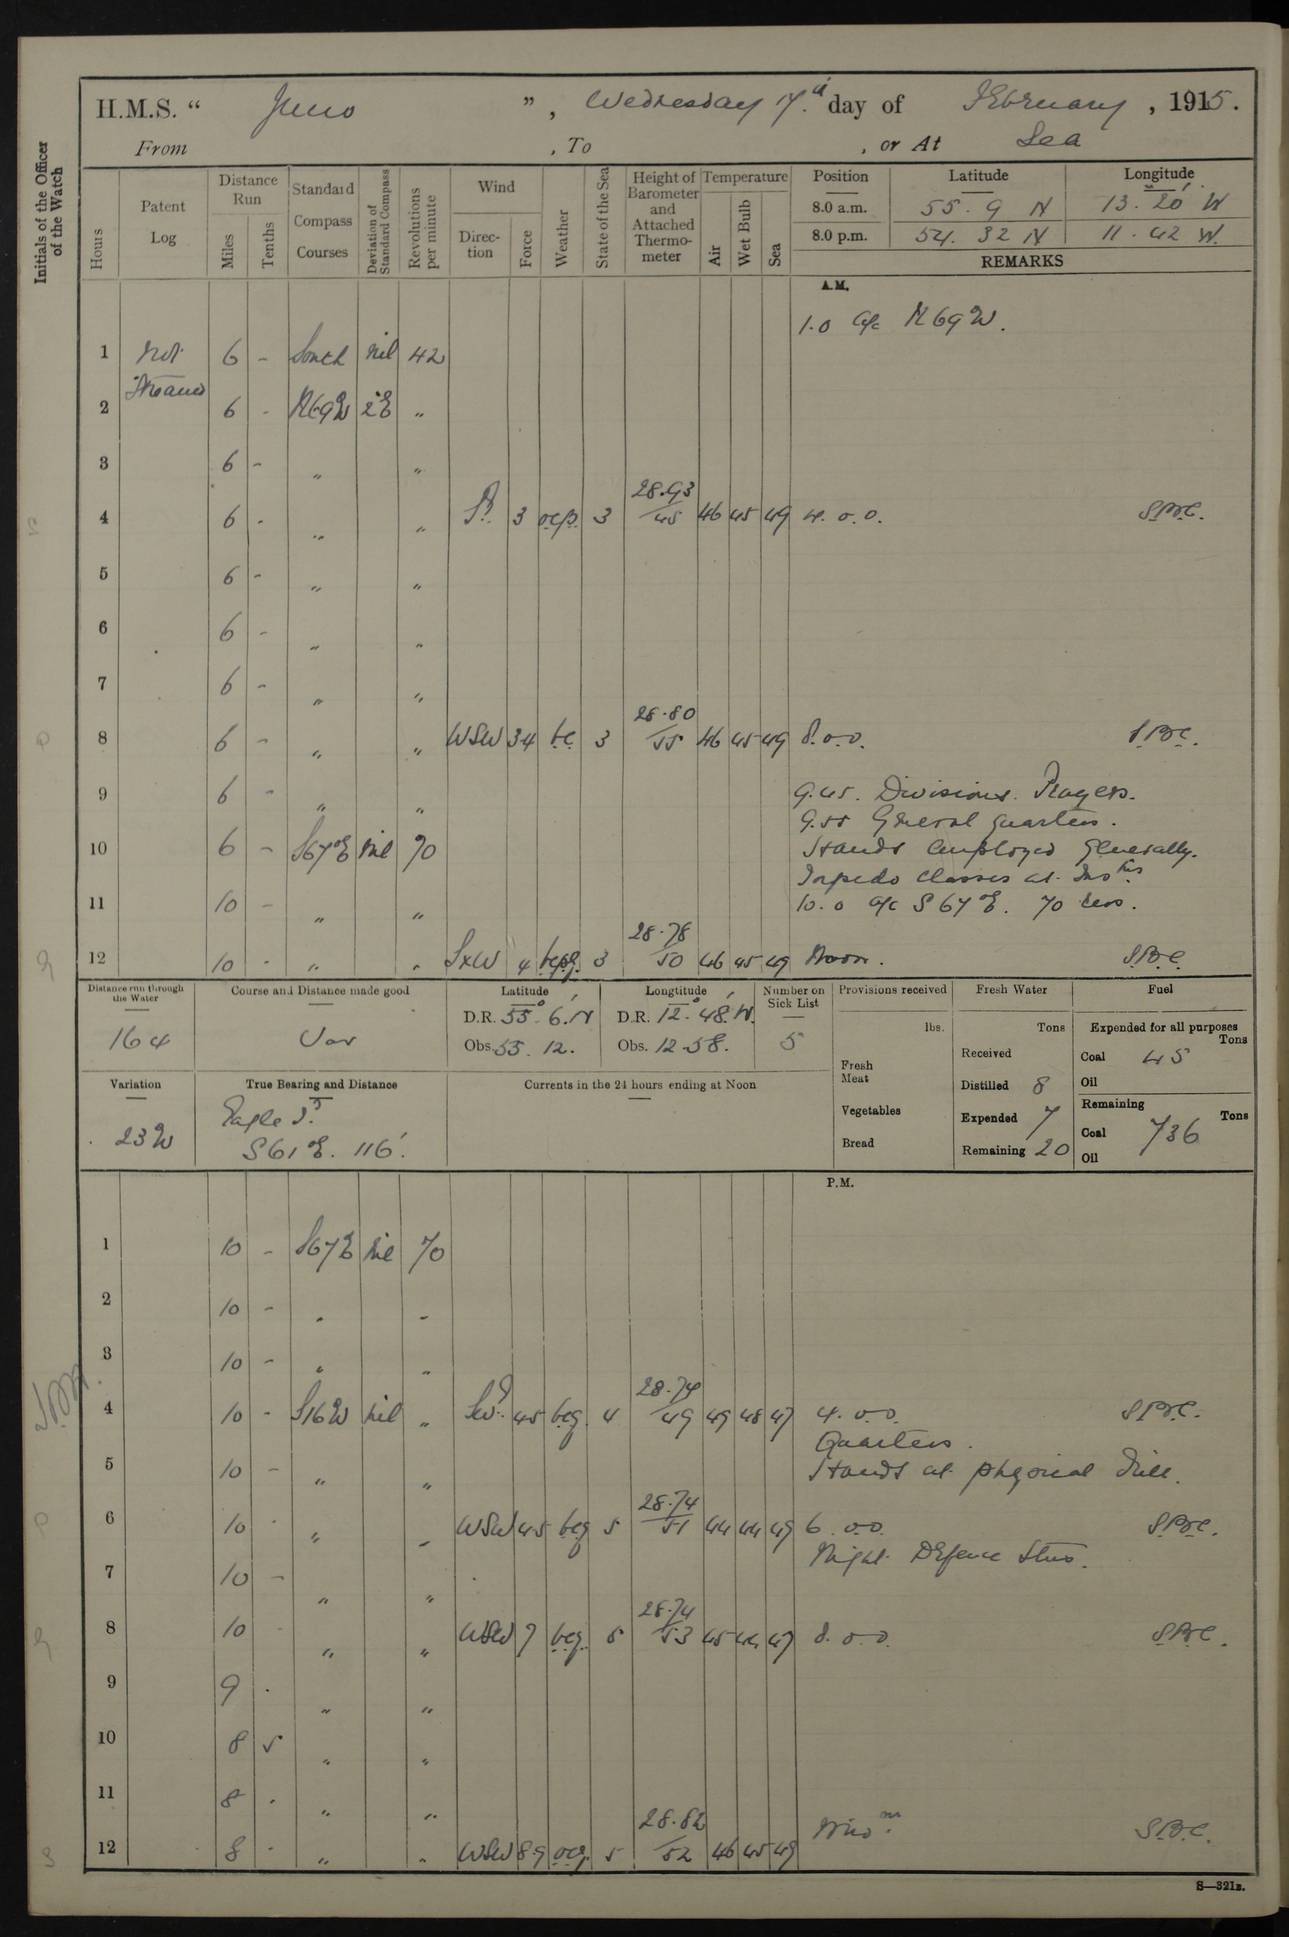 H.M.S. “ Juno ”, Wednesday 17th day of February, 1915.
From , To , or At Sea
Initials of the Officer of the Watch
Hours
Patent Log
Distance Run
Miles
Tenths
Standard Compass Courses
Deviation of Standard Compass
Revolutions per minute
Wind
Direction
Force
Weather
State of the Sea
Height of Barometer and Attached Thermometer
Temperature
Air
Wet Bulb
Sea
Position Latitude Longitude
8.0 a.m. 55. 9 N 13. 20 W
8.0 p.m. 54. 32 N 11. 42 W.
REMARKS
A.M.
1.0 a/c N 69 W.
1 Not 6 - South nil 42
Streamed
2 6 - N69W 2°E "
3 6 - " "
28.93
4 6 - " " Sd. 3 3 /45 46 45 49 4. 0.0. S.B.C.
5 6 - " "
6 6 - " "
7 6 - " "
28.80
8 6 - " " WSW 34 bc 3 /55 46 45 49 8.0.0. S.B.C.
9 6 - " " 9.45. Divisions. Prayers.
9.55 General Quarters.
10 6 - S67E nil 70 Hands employed generally.
Torpedo classes at Inst.ns
11 10 - " " 10.0 a/c S 67 E. 70 revs.
28.78
12 10 - " " SxW 4 3 /50 46 45 49 Noon. S.B.C.
Distance run through the Water Course and Distance made good Latitude Longtitude Number on Sick List Provisions received Fresh Water Fuel
164 Var D.R. 55° 6.'N D.R. 12.° 48.'W. 5
Obs. 55. 12. Obs. 12. 58.
lbs. Tons Expended for all purposes Tons
Fresh Meat Received Coal 45
Distilled 8 Oil
Variation True Bearing and Distance Currents in the 24 hours ending at Noon
23 W Eagle Id. S 61 E. 116'.
Vegetables Expended 7 Remaining Tons
Coal 736
Bread Remaining 20 Oil
P.M.
1 10 - S67E nil 70
2 10 - " "
3 10 - " "
28.74
4 10 - S16W nil " 45 bcq. 4 /49 49 48 47 4. 0.0. S.B.C.
Quarters.
5 10 - " " Hands at physical drill.
28.74
6 10 - " " WSW 45 bcq 5 /51 44 44 49 6. 0.0. S.B.C.
Night Defence Stns.
7 10 - " "
28.74
8 10 - " " WSW 7 bcq. 5 /53 45 44 47 8. 0.0. S.B.C.
9 9 - " "
10 8 5 " "
11 8 - " "
28.82
12 8 - " " WSW 8.9 ocq. 5 /52 46 45 49 S.B.C.
S—321B.